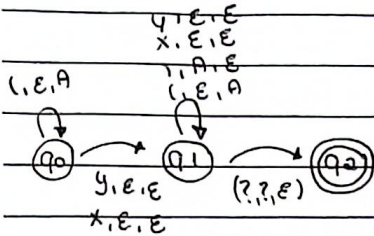 y, ε, ε
x, ε, ε
), A, ε
(, ε, A
(, ε, A
q0
q1
q2
y, ε, ε
(?, ?, ε)
x, ε, ε